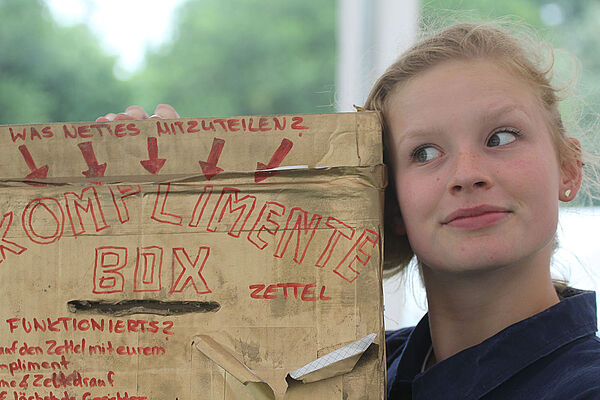 WAS NETTES MITZUTEILEN?
KOMPLIMENTE
BOX
ZETTEL
FUNKTIONIERTS?
auf den Zettel mit eurem
mpliment
me & Zelt drauf